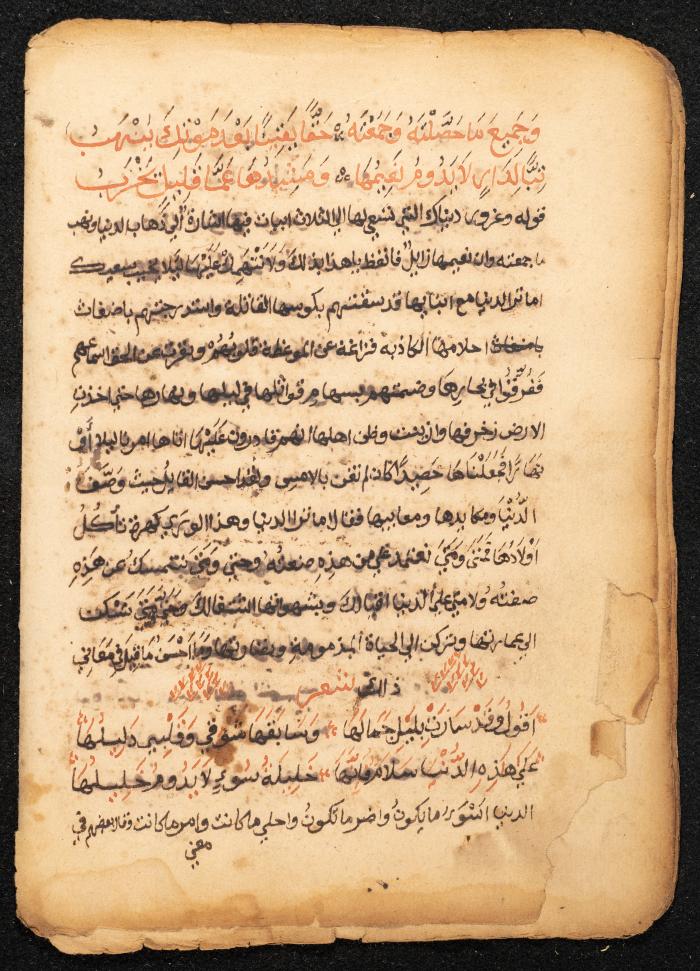 وَجَمِيعَ مَا حَصَّلْتَهُ وَجَمَعْتَهُ حَقًّا يَقِينًا بَعْدَ مَوْتِكَ يُنْهَبُ
تَبًّا لِدَارٍ لَا يَدُومُ نَعِيمُهَا وَمَشِيدُهَا عَمَّا قَلِيلٍ يَخْرَبُ
قوله وغرور دنياك التي تسعى لها الى الثلاث ابيات فيها اشارة الى ذهاب الدنيا ونهب
ما جمعته وان نعيمها زايل فاتعظ يا هذا بذلك ولا تنهمك عليها ليلا يخيب سعيك
اما ترا الدنيا مع ابنايها قد سقتهم بكوسها القاتلة واستدرجتهم باضغاث
احلامها الكاذبة فزاغة عن الموعظة قلوبهم ونفرة عن الحق اسماعهم
فغرقوا في بحارها وضمتهم بسهام قواتلها في ليلها ونهارها حتى اخذت
الارض زخرفها وازينت وظن اهلها انهم قادرون عليها اتاها امرنا ليلا أو
نهارًا فجعلناها حصيدًا كان لم تغن بالامس ولقد احسن القايل حيث وصف
الدنيا ومكايدها ومعايبها فقال اما ترا الدنيا وهذا الورى كهرة تأكل
اولادها فمتى تعتمد على من هذه صنعته وحتى ومتى تتمسك عن هذه
صفته ولامتى على الدنيا اقبالك وبشهواتها اشتغالك ومتى تسكن
الى عمارتها وتركن الى الحياة المذمومة وما احسن ما قيل في معاني
ذالك شعر
اَقُولُ وَقَدْ سَارَتْ بِلَيْلٍ جِمَالُهَا وَسَابَقَهَا شَوْقِي وَقَلْبِي دَلِيلُهَا
عَلَى هَذِهِ الدُّنْيَا سَلَامٌ فَإِنَّهَا خَلِيلَةُ سُوءٍ لَا يَدُومُ خَلِيلُهَا
الدنيا اشورا ما يكون واضر ما تكون واحلى ما كانت وامر ما كانت وقال بعضهم في
معنى